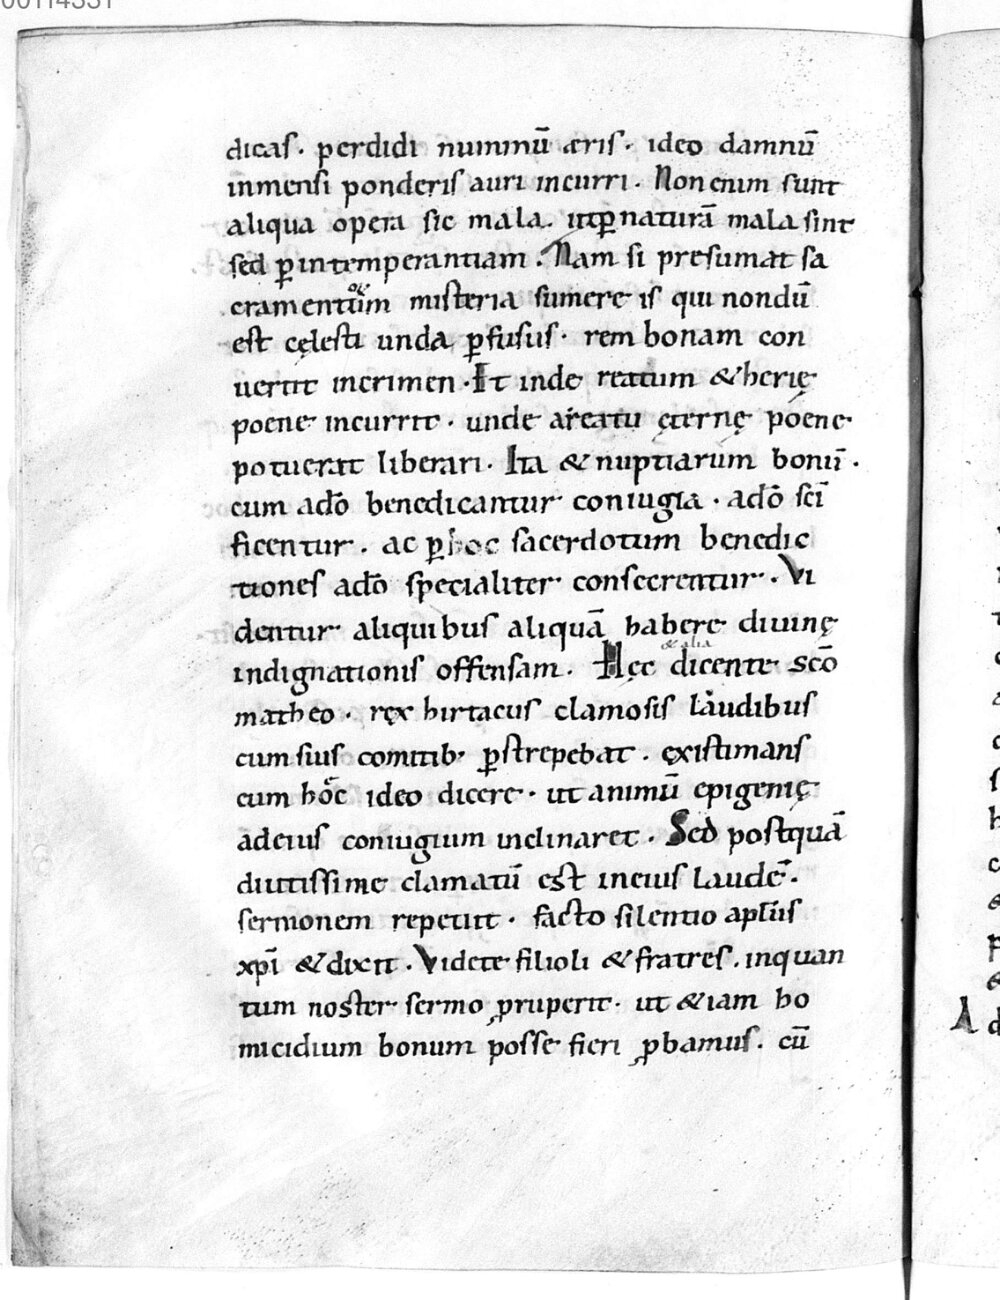 00114331
dicas. perdidi nummū æris. ideo damnū
inmensi ponderis auri incurri. Non enim sunt
aliqua opera sic mala. ut ꝑ naturā mala sint
sed ꝑ intemperantiam. Nam si presumat sa
cramentūm misteria sumere is qui nondū
est cęlesti unda ꝑfusus. rem bonam con
uertit in crimen. Et inde reatum & herię
poene incurrit. unde a reatu ęternę poene
potuerat liberari. Ita & nuptiarum bonū.
cum a dō benedicantur coniugia. a dō sci
ficentur. ac ꝑ hoc sacerdotum benedic
tiones a dō specialiter consecrentur. Vi
dentur aliquibus aliquā habere diuinę
indignationis offensam. Hęc & alia dicente scō
matheo. rex hirtacus clamosis laudibus
cum suis comitib; ꝑstrepebat. existimans
eum hoc ideo dicere. ut animū epigenię
ad eius coniugium inclinaret. Sed postquā
diutissime clamatū est in eius laudē.
sermonem repetiit. facto silentio aplūs
xpī & dixit. Videte filioli & fratres. inquan
tum noster sermo ꝓruperit. ut & iam ho
micidium bonum posse fieri ꝓbamus. cū